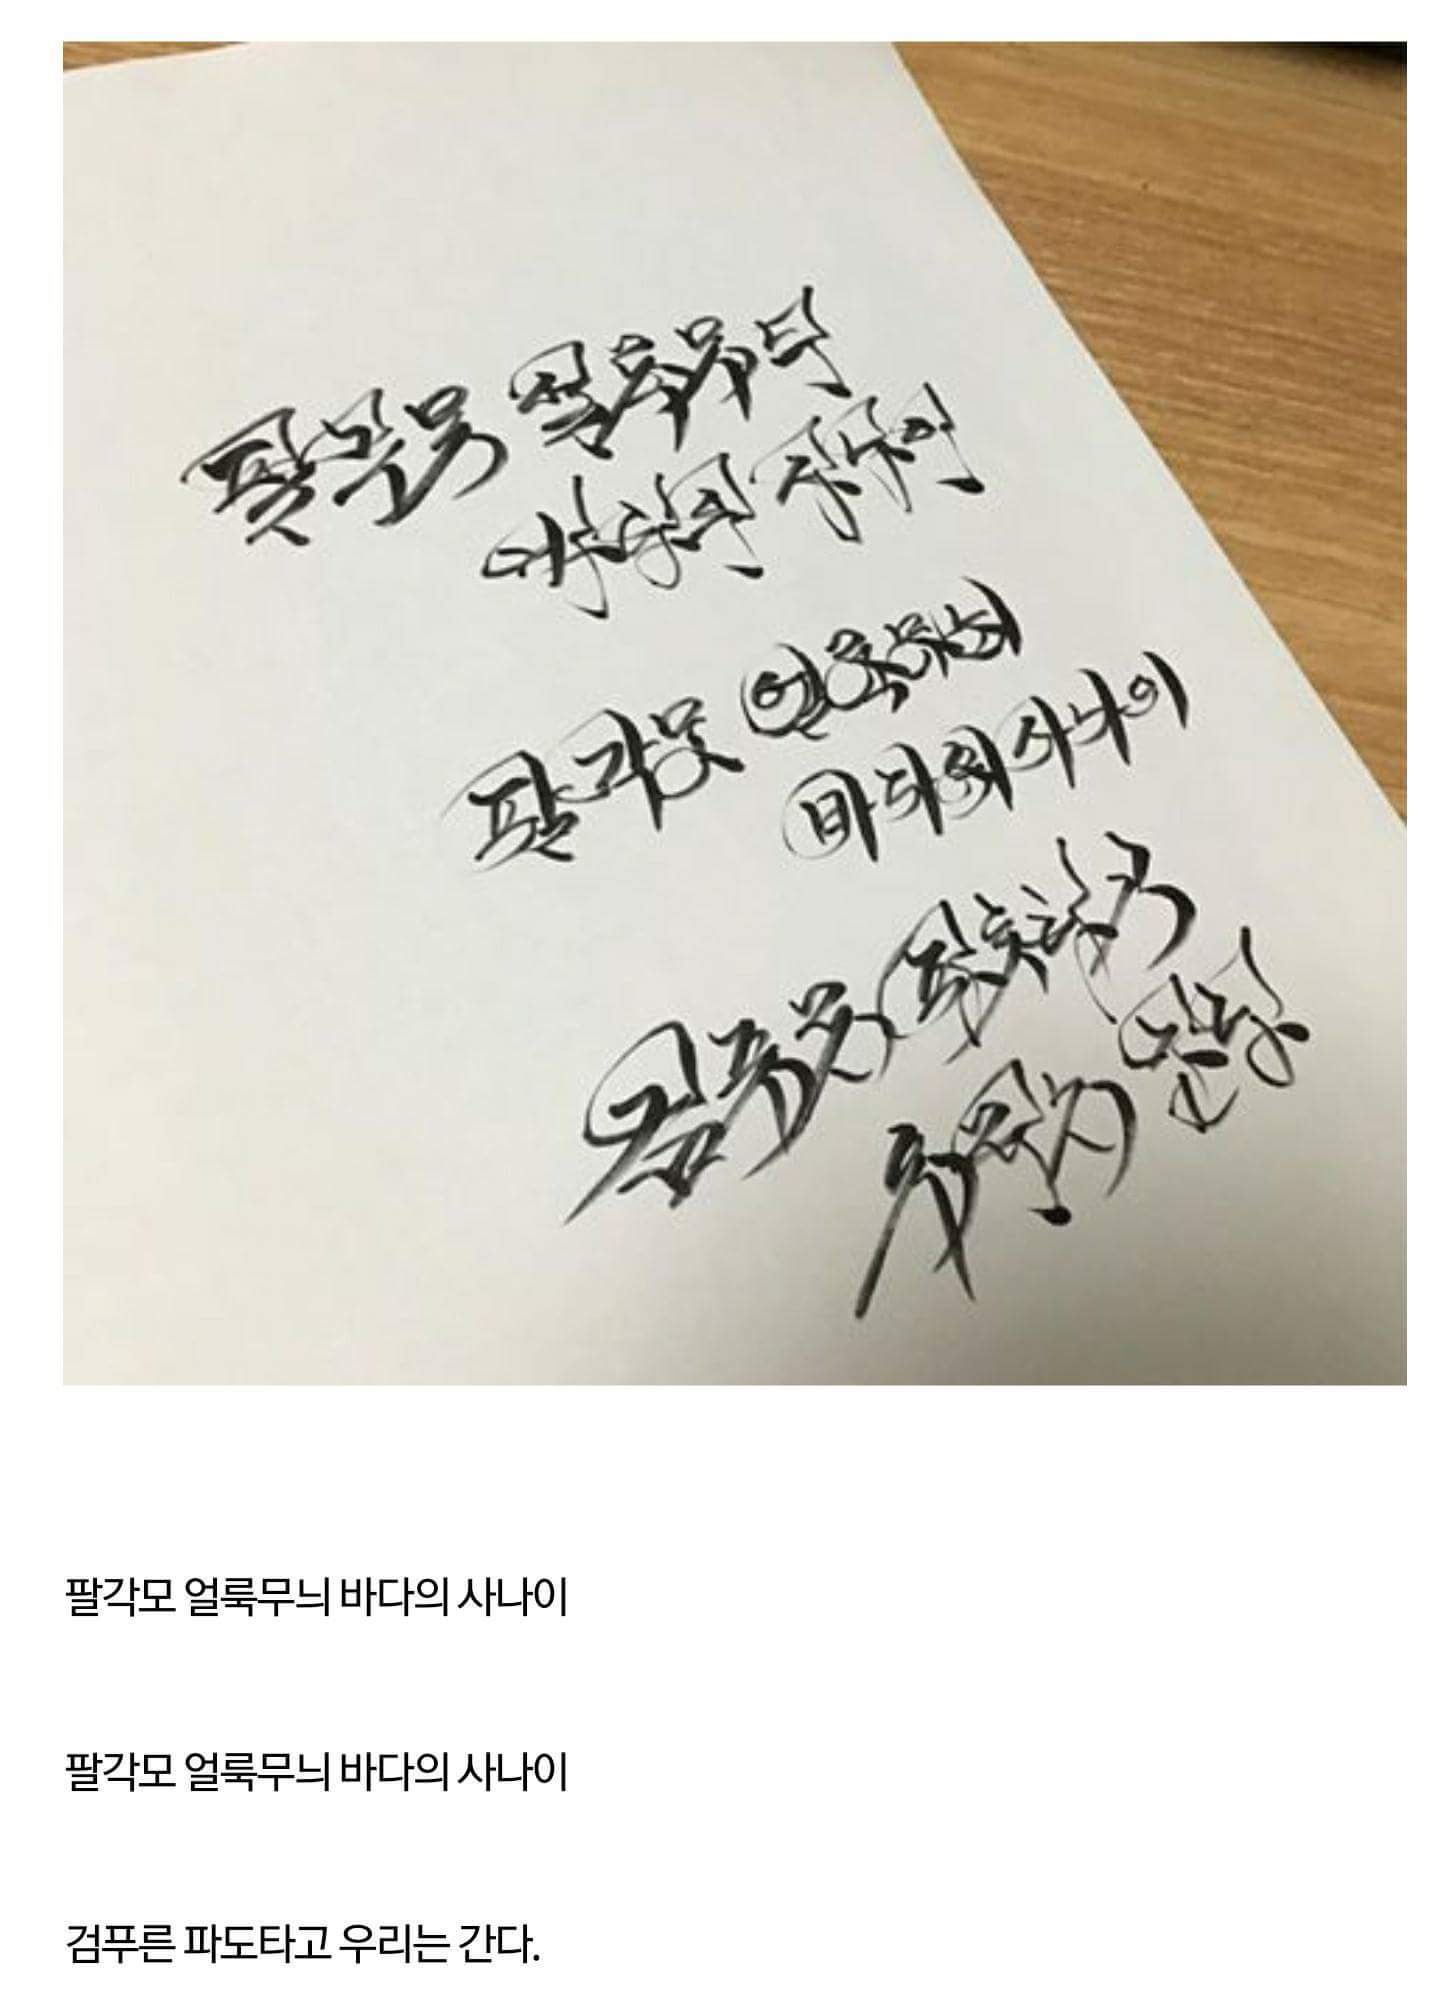 팔각모 얼룩무늬
바다의 사나이
팔각모 얼룩무늬
바다의 사나이
검푸른 파도타고
우리는 간다
팔각모 얼룩무늬 바다의 사나이
팔각모 얼룩무늬 바다의 사나이
검푸른 파도타고 우리는 간다.